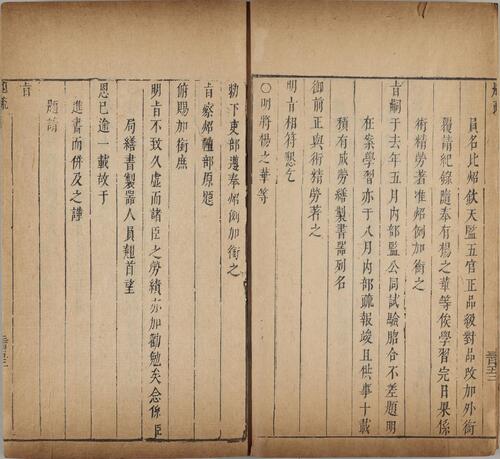 員名比照欽天監五官正品級對品改加外銜
覆請紀錄隨奉有楊之華等俟學習完日果係
術精勞著准照例加銜之
旨嗣于去年五月內部監公同試驗脗合不差題明
在案學習亦于八月內部疏報竣且供事十載
預有成勞繕製書器列名
御前正與術精勞著之
明旨相符懇乞
○明將楊之華等
勑下吏部遵奉照例加銜之
旨察照禮部原題
俯賜加銜庶
明旨不致久虛而諸臣之勞績亦加勸勉矣念係臣
局繕書製器人員翹首望
恩已逾一載故于
進書而併及之謹
題請
旨